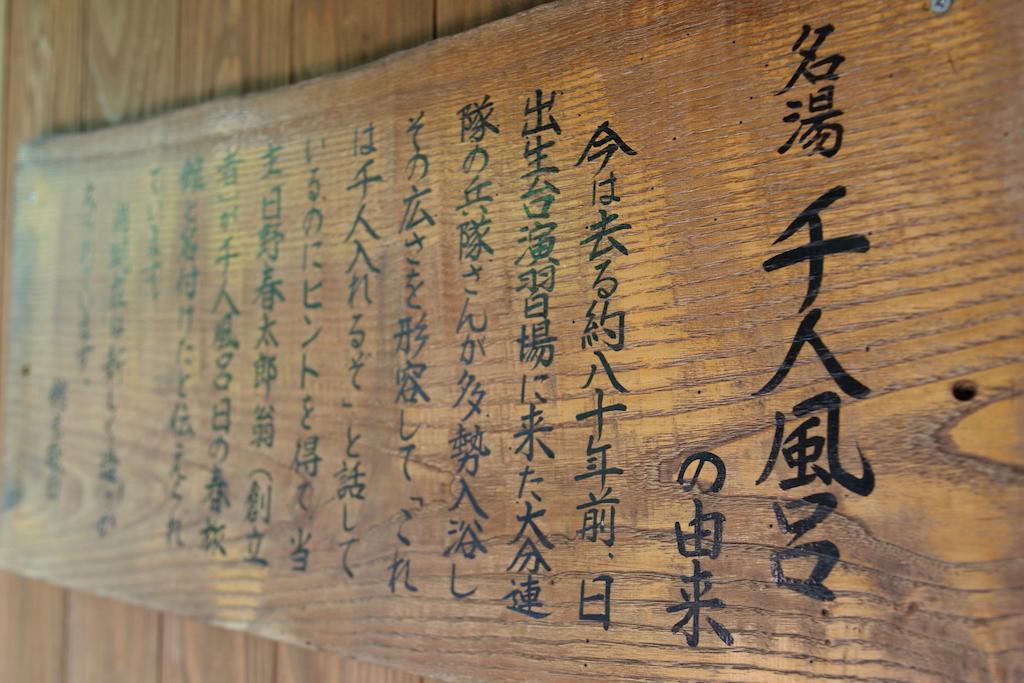 名湯 千人風呂
の由来
今は去る約八十年前、日
出生台演習場に来た大分連
隊の兵隊さんが多勢入浴し
その広さを形容して「これ
は千人入れるぞ」と話して
いるのにヒントを得て当
主日野春太郎翁（創立
者）が千人風呂日の春旅
館と名付けたと伝えられ
ています